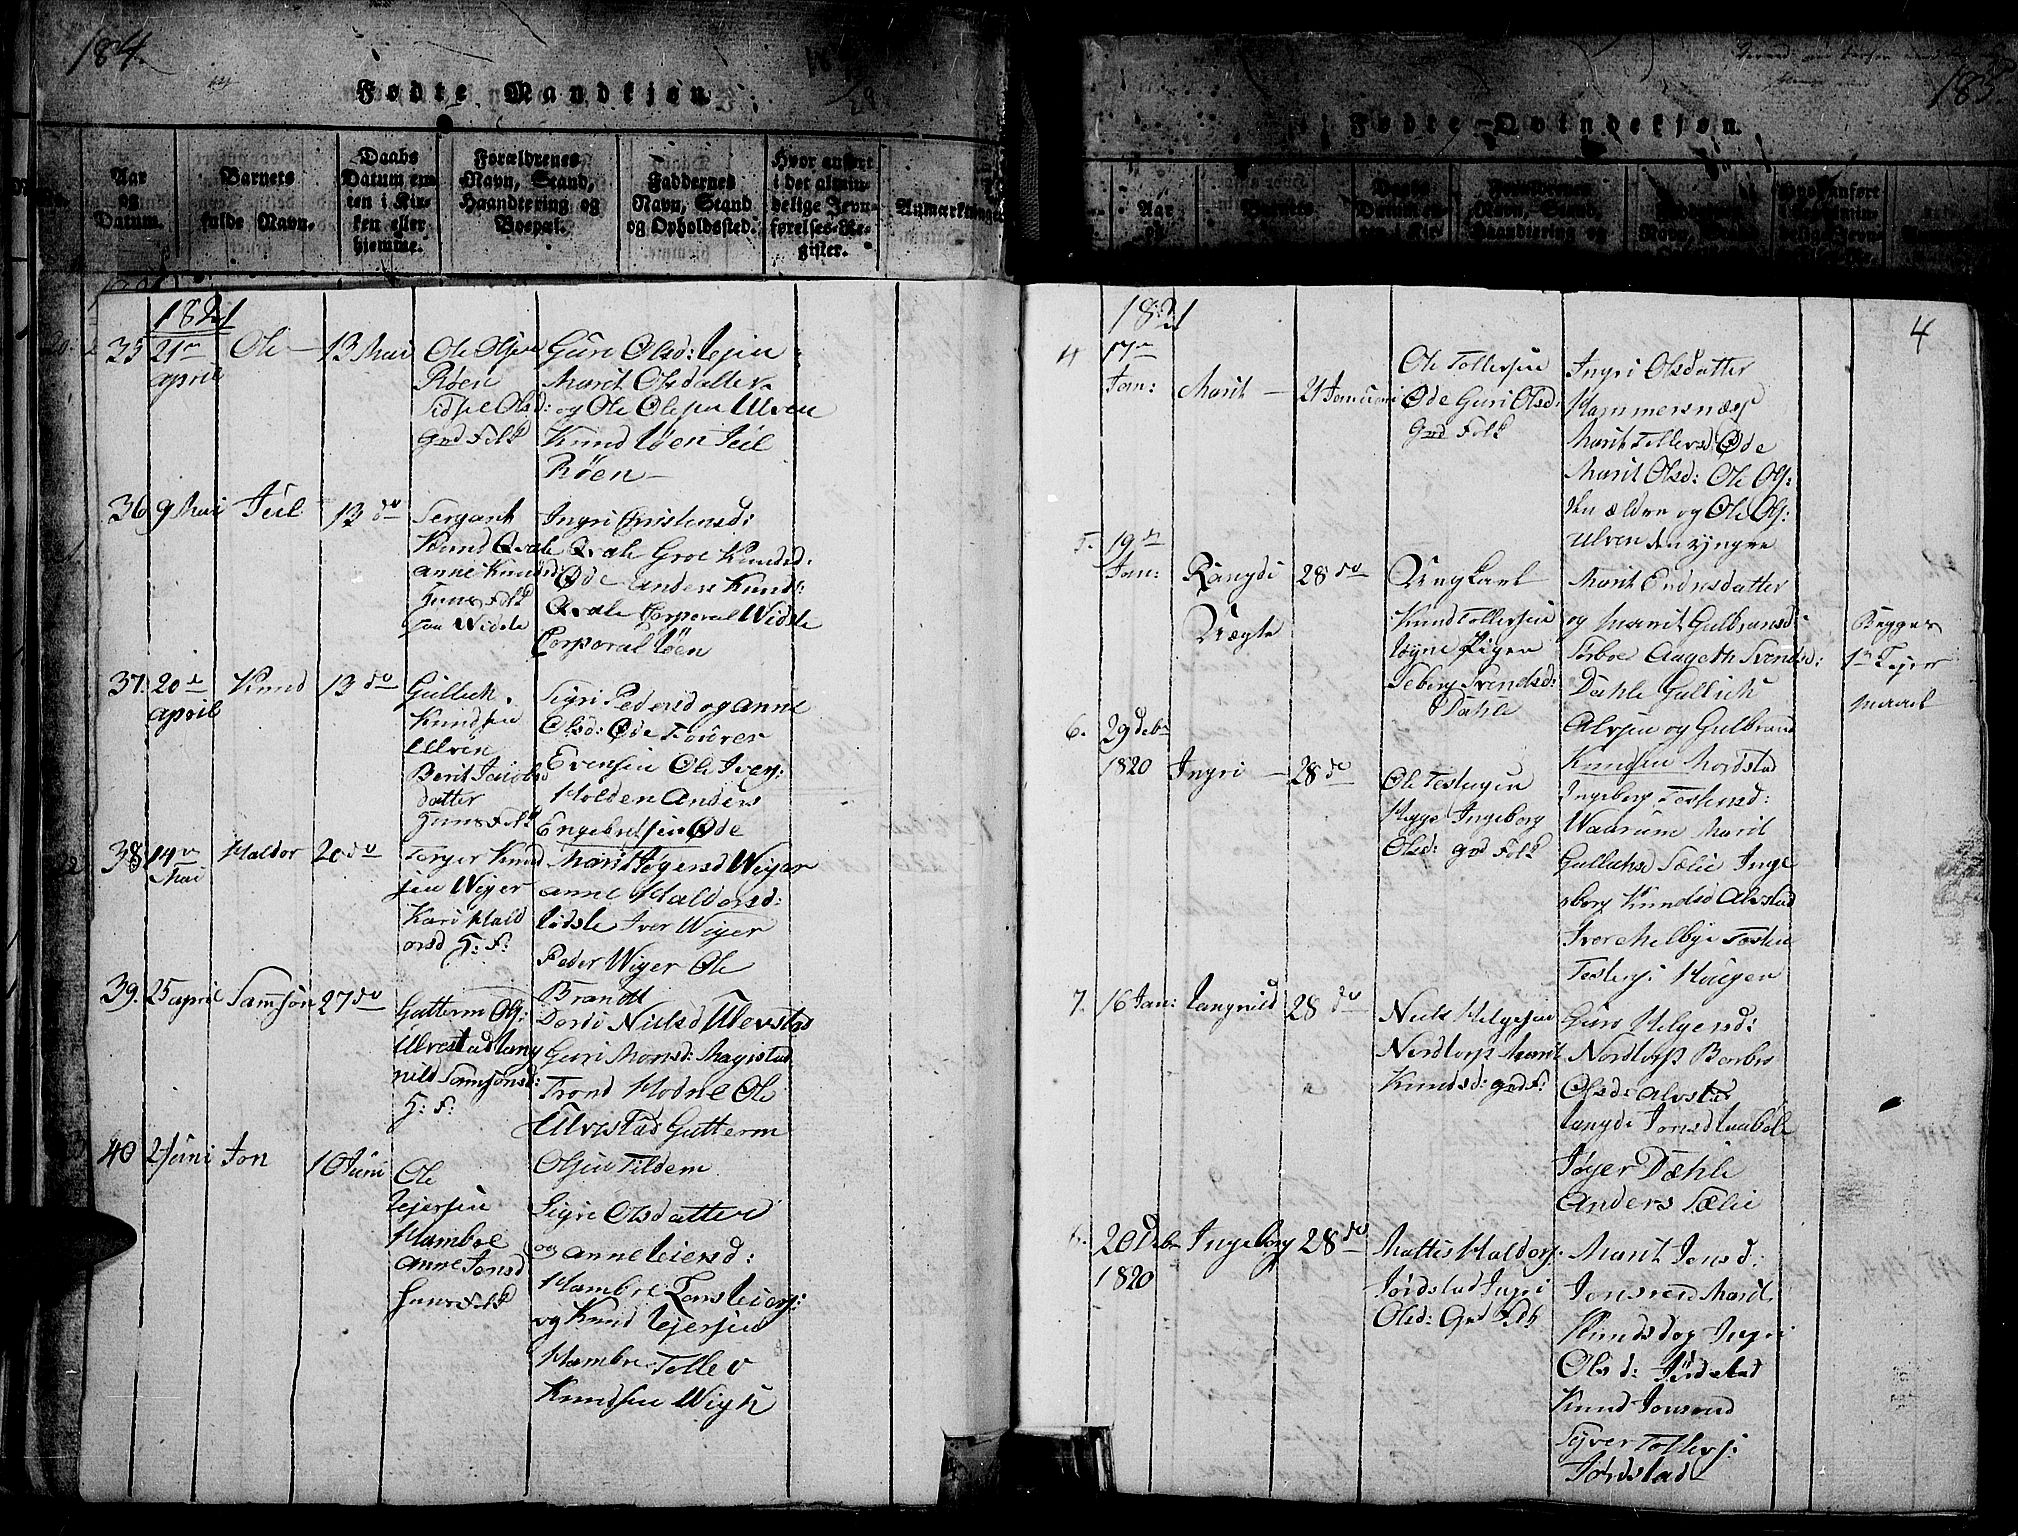 184.
Fødte Mandkjøn.
Aar og Datum.
Barnets fulde Navn.
Daabs Datum enten i Kirken eller hjemme.
Forældrenes Navn, Stand, Haandtering og Boepæl.
Faddernes Navn, Stand og Opholdssted.
Hvor anført i det almindelige Jevnførelses-Register.
Anmærkninger
1821
35 21de april
Ole
13 Mai
Ole Olsen
Røen
Sidsel Olsd:
Grd Folk
Guri Olsd: Lejen
Marit Olsdatter
og Ole Olsen Ulven
Knud Løen Juul
Røen
36 9 Mai
Juul
13 do
Sergant
Knud Qvale
Anne Knudsd
Huus Folk
paa Widste
Ingri Christensd:
Qvale Groe Knudsd:
Øde Anders Knuds:
Qvale Corporal Widste
Corporal Løen
37. 20de april
Knud
13 do
Gullich
Knudsen
Ulven
Berit Jacobs
datter
Huus Folk
Sigri Pedersd og Anne
Olsd: Øde Touver
Evensen Ole Ivers:
Holden Anders
Engebretsen Øde
38 14de Mai
Haldor
20 do
Torger Knud
sen Wiger
Kari Hald
orsd H: F:
Marit Tøgersd Wiger
Anne Haldorsd:
Lidsle Iver Wiger
Peder Wiger Ole
Brandt
39. 25 april
Samson
27 do
Guttorm Ols:
Ulvestad Lang
nild Samsonsd:
H: F:
Dordi Nielsd Ulvestad
Guri Monsd: Magistad
Trond Hodne Ole
Ulvestad Guttorm
Olsen Tildem
40 2 Juni
Jon
10 Juni
Ole
Lejersen
Hambre
Anne Jonsd
Huus Folk
Sigri Olsdatter
og Anne Leiersd:
Hambre Tons Leiers:
og Knud Lejersen
Hambre Tollev
Knudsen Wigh
185.
Fødte Qvindekjøn.
Aar og
Barnets
Daabs Datum enten i Kir
Forældrenes Navn, Stand, Haandtering og
Faddernes Navn, Stand
Hvor anført i det almindelige Jevn
4
1821
4 17de Jan:
Marit
21 Januari
Ole Tollersen
Øde Guri Olsd:
Grd Folk
Ingri Olsdatter
Hammersnæs
Marit Tollevsd: Øde
Marit Olsd: Ole Ols:
den ældre og Ole Ols:
Ulven den yngre
5. 19de Jan:
Rangdi
Uægte
28 do
Ungkarl
Knud Tollersen
Løyne Pigen
Seberg Svendsd:
Dæhle
Marit Endresdatter
og Marit Gulbransd:
Sørboe Aageth Svendsd:
Dæhle Gullich
Alvsen og Gulbrand
Knudsen Nordstad
Begges
1te Lejer
maael
6. 29 Debr 1820
Ingri
28 do
Ole Tostensen
Hegge Ingeborg
Olsd: grd Folk
Ingeborg Tostensd:
Waarum Marit
Gullichsd Sælie Inge
borg Knudsd Alvstad
Iver Melbye Tosten
Tostens: Haugen
7. 16 Jan:
Langnild
28 do
Niels Helgesen
Nordtorp Marit
Knudsd: grd F:
Guro Helgesd:
Nordtorp Barbro
Olsd: Alvstad
Langdi Jonsd Laabøle
Tøger Dæhle
Anders Sælie
20 Debr 1820
Ingeborg
28 do
Mattis Haldors.
Jørdstad Ingri
Olsd: Grd Folk
Marit Jonsd:
Jonsrud Marit
Knudsd og Ingri
Olsd: Jørdstad
Knud Jonsrud
Syver Tollevs:
Jørdstad